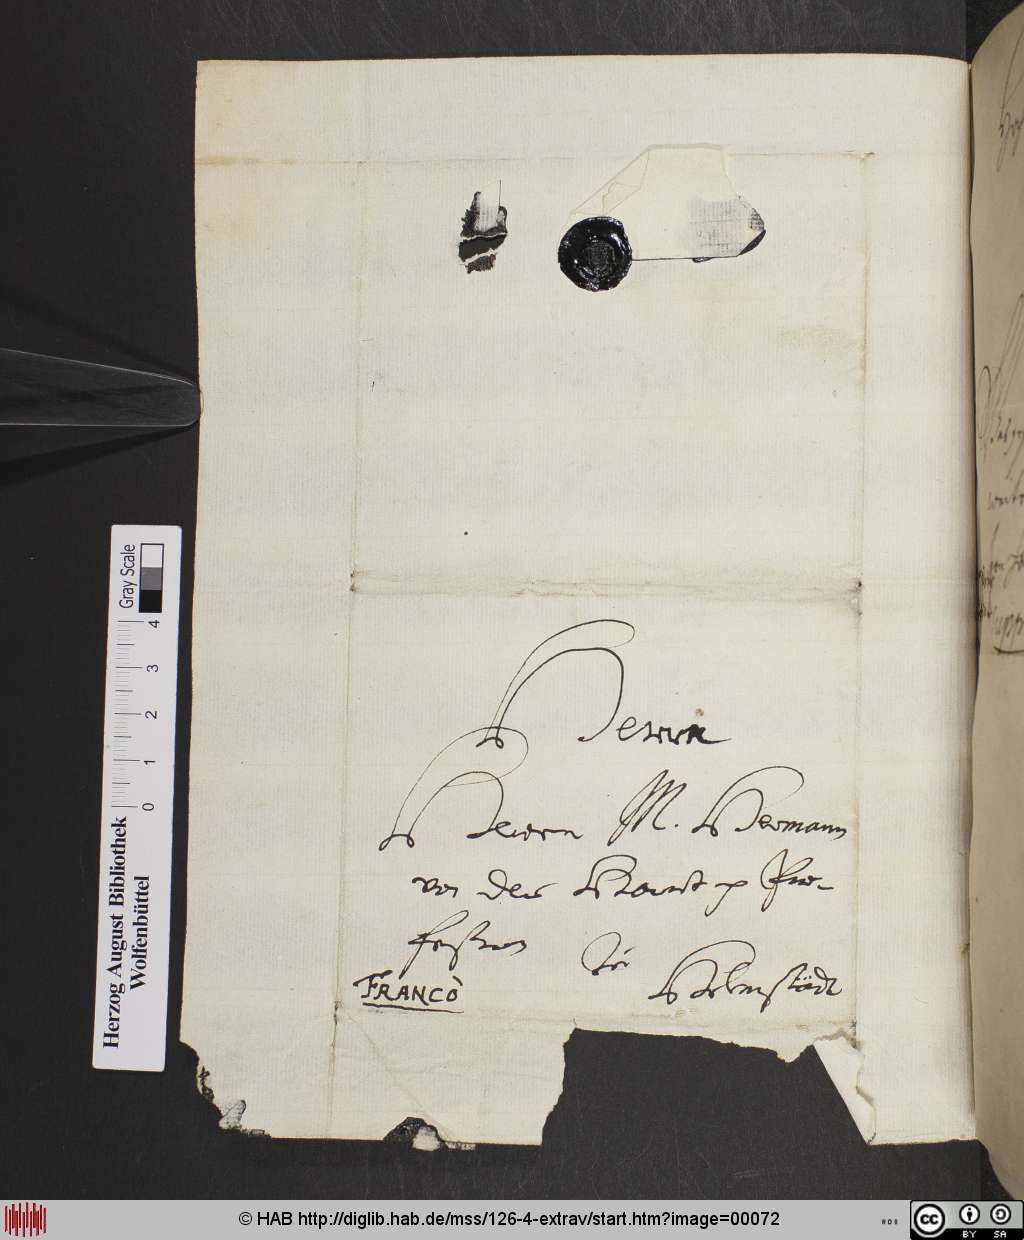 Herrn
Herrn M. Hermann
von der Hardt p Pro-
fessorn
zu
Helmstädt
FRANCO
Gray Scale
0 1 2 3 4
Herzog August Bibliothek
Wolfenbüttel
© HAB http://diglib.hab.de/mss/126-4-extrav/start.htm?image=00072
cc BY SA